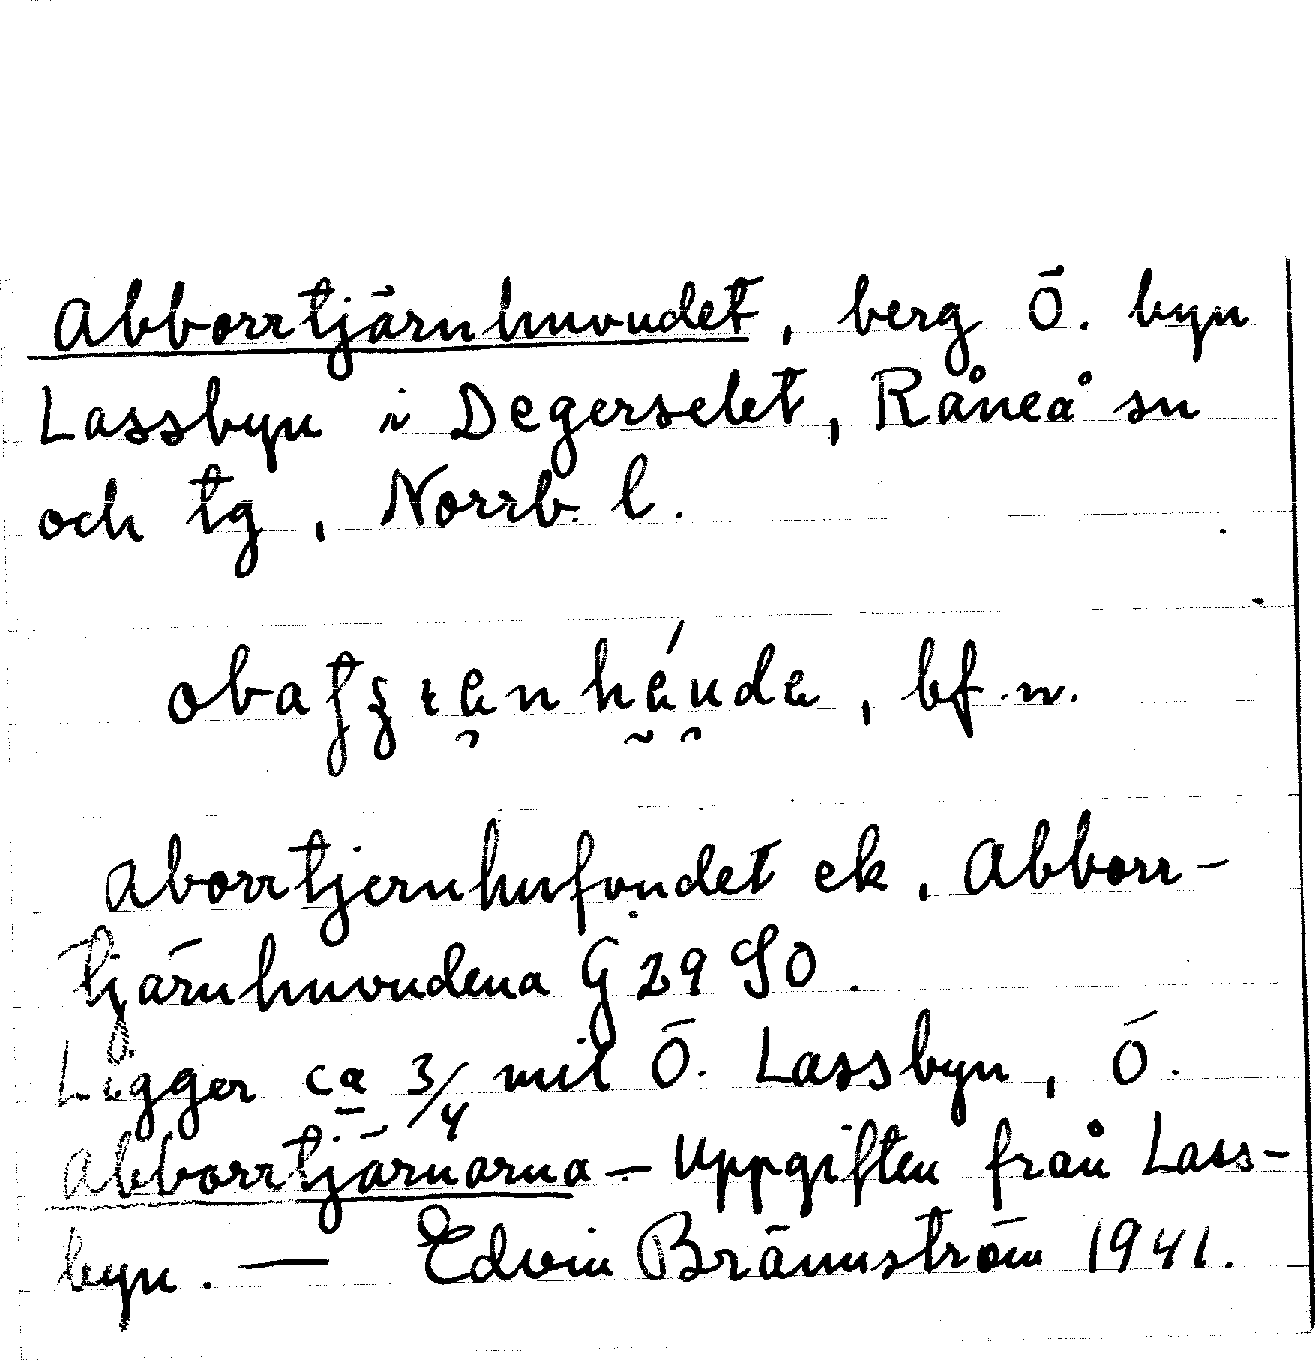 Abborrtjärnhuvudet, berg Ö. byn
Lassbyn i Degerselet, Råneå sn
och tg, Norrb. l.
, bf. n.
Aborrtjernhufvudet ek. Abborr-
tjärnhuvudena G 29 SO.
Ligger ca 3/4 mil Ö. Lassbyn, Ö.
Abborrtjärnarna – Uppgiften från Lass-
byn. — Edvin Brännström 1941.